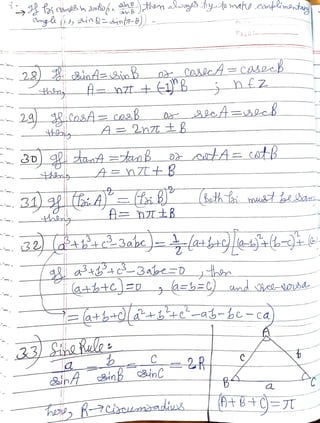 → If Tri comes in ratio (i.e. sinθ/sinθ), then always try to make complimentary
angle (i.e., sinθ = sin(π-θ)
28) If sinA = sinB or cosecA = cosecB
then, A = nπ + (-1)ⁿB ; n ∈ Z
29) If cosA = cosB or secA = secB
then, A = 2nπ ± B
30) If tanA = tanB or cotA = cotB
then, A = nπ + B
31) If (Tri.A)² = (Tri B)² (Both Tri must be sam
then, A = nπ ± B
32) (a³+b³+c³-3abc) = 1/2 (a+b+c)[(a-b)²+(b-c)²+(c
If a³+b³+c³-3abc=0, then
(a+b+c)=0, (a=b=c) and vice-versa
= (a+b+c)(a²+b²+c²-ab-bc-ca)
33) Sine Rule:
a/sinA = b/sinB = c/sinC = 2R
A
c b
B a C
here, R→Circumradius (A+B+C)=π